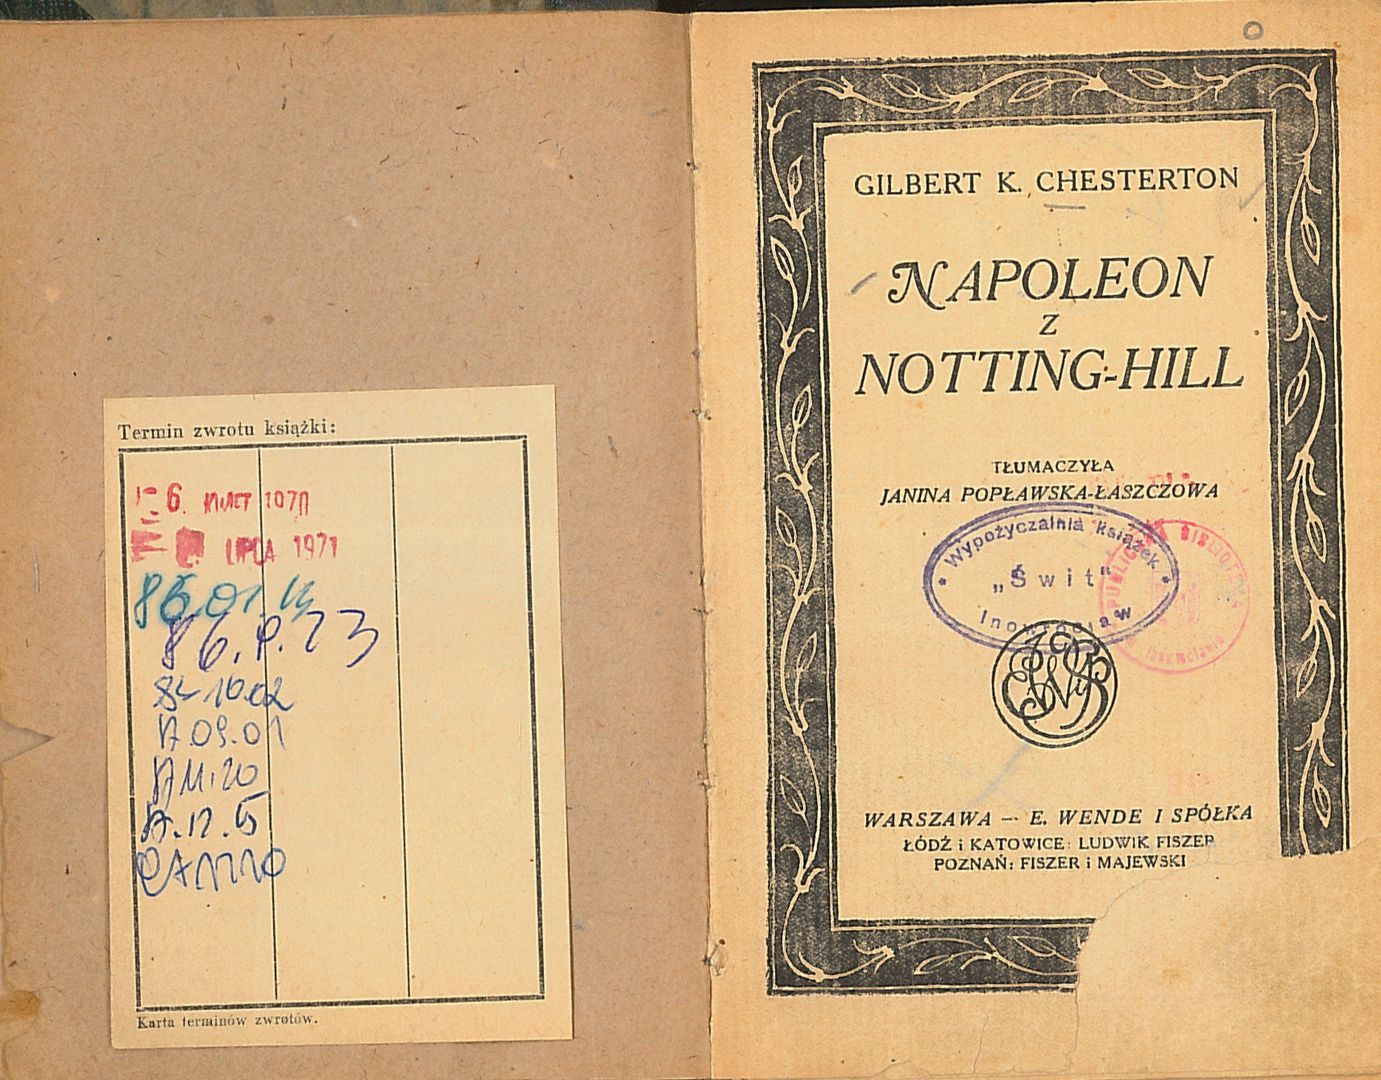 Termin zwrotu książki:
6. KWIET 1970
LIPCA 1971
86.01.
86.
10.02
09.01
11.20
12.15
Karta terminów zwrotów.
GILBERT K. CHESTERTON
NAPOLEON
Z
NOTTING-HILL
TŁUMACZYŁA
JANINA POPŁAWSKA-ŁASZCZOWA
Wypożyczalnia książek
„Świt"
Inowrocław
PUBLICZNA BIBLIOTEKA
WARSZAWA — E. WENDE I SPÓŁKA
ŁÓDŹ i KATOWICE: LUDWIK FISZER
POZNAŃ: FISZER i MAJEWSKI